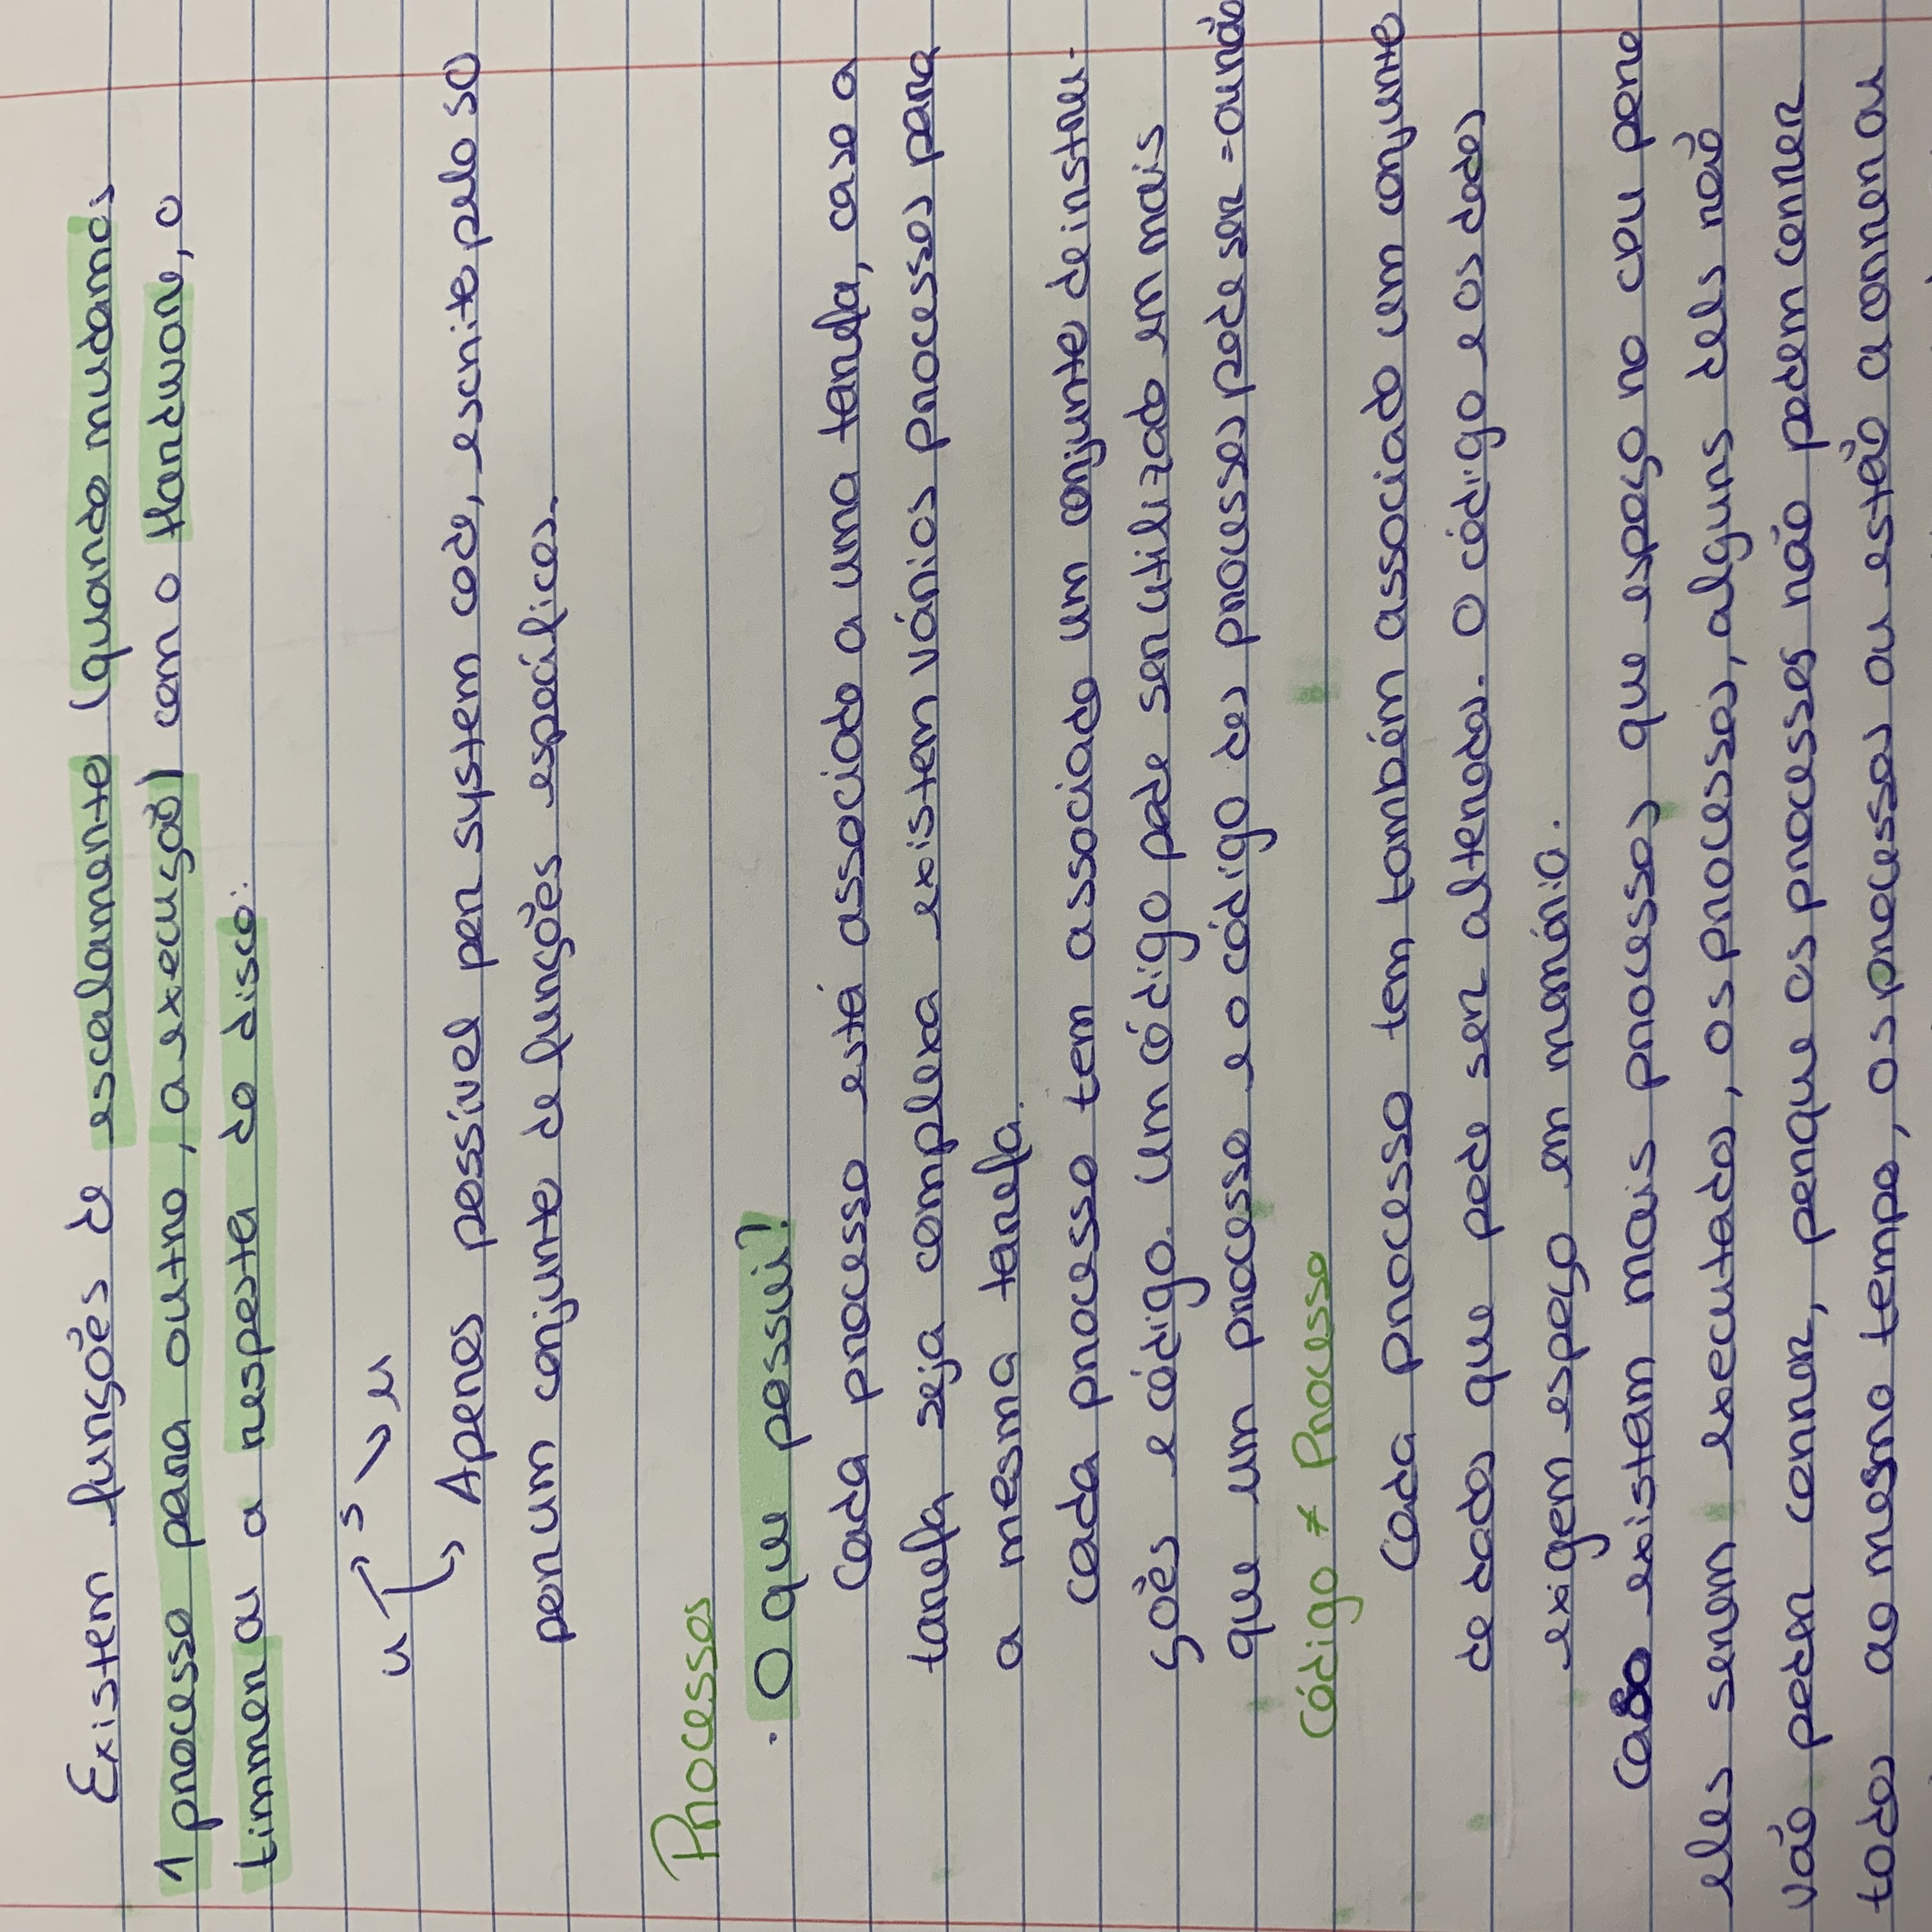 Existem funções de escalamento (quando mudamos
1 processo para outro, a execução) com o Hardware, o
timmer ou a resposta do disco:
u s u
Apenas possível por system code, escrito pelo SO
por um conjunto de funções específicas.
Processos
· O que possui?
Cada processo está associado a uma tarefa, caso a
tarefa seja complexa existem vários processos para
a mesma tarefa.
Cada processo tem associado um conjunto de instru-
ções e código. Um código pode ser utilizado em mais
que um processo e o código dos processos pode ser = ou não
Código ≠ Processo
Cada processo tem também associado um conjunto
de dados que pode ser alterados. O código e os dados
exigem espaço em memória.
Caso existam mais processos que espaço no CPU para
eles serem executados, os processos, alguns dels não
vão poder correr, porque os processos não podem correr
todos ao mesmo tempo, os processos ou estão a correr ou